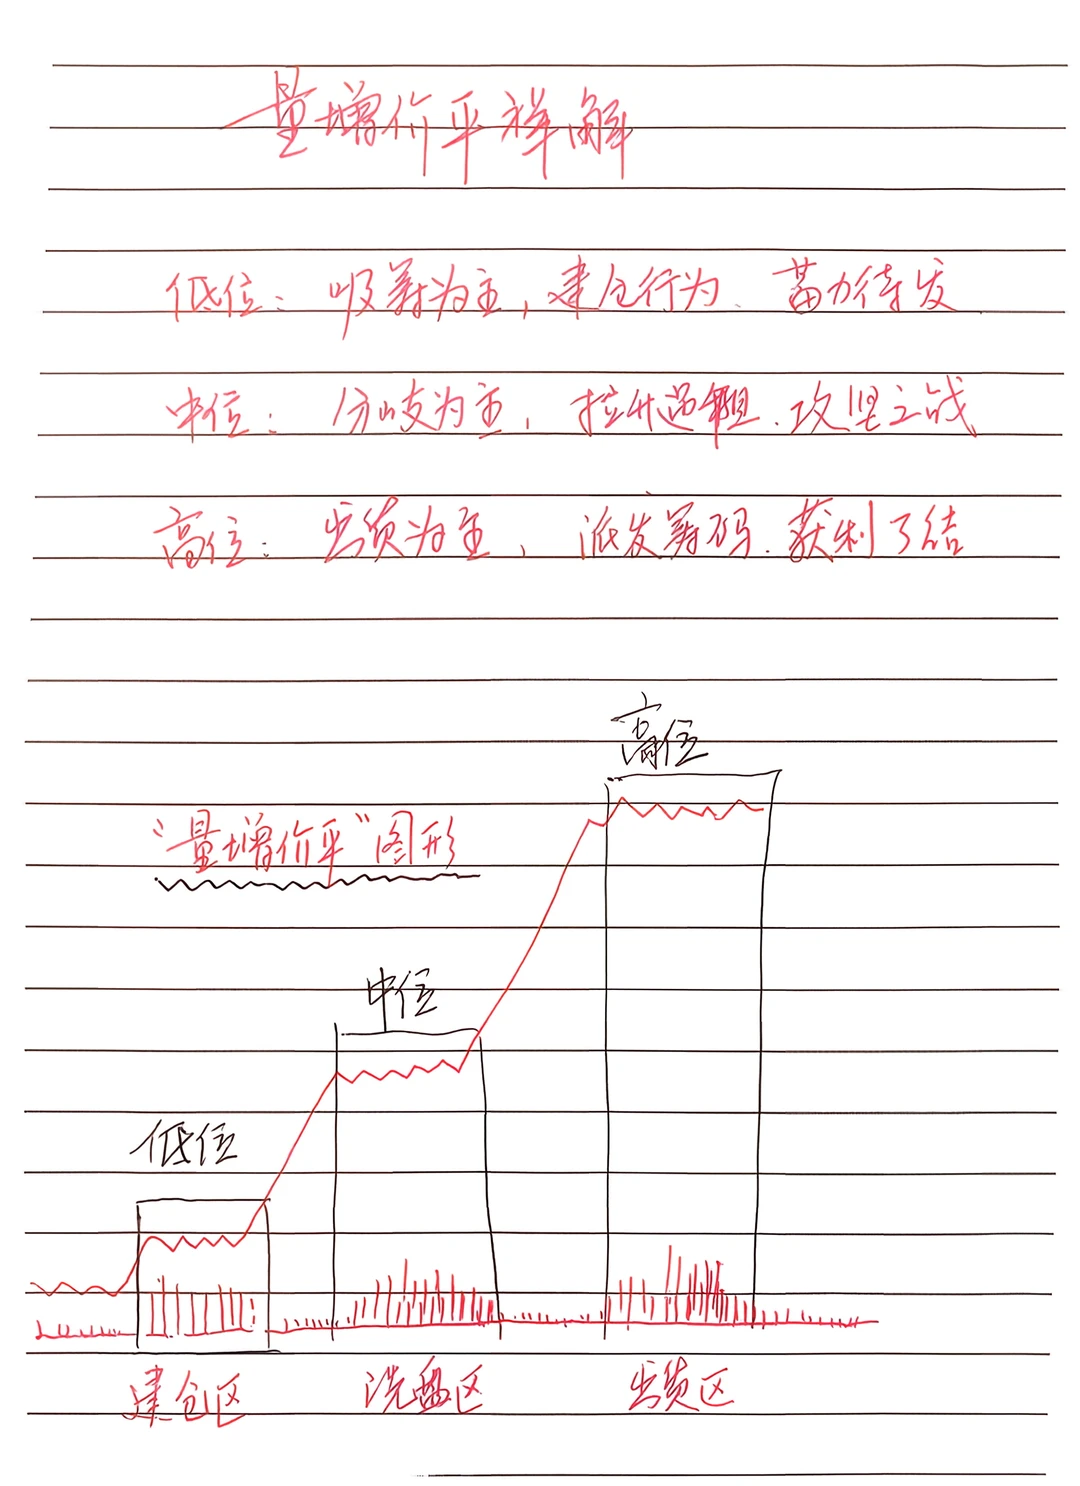 量增价平祥解
低位：吸筹为主，建仓行为、蓄力待发
中位：分歧为主，拉升遇阻、攻坚之战
高位：出货为主，派发筹码、获利了结
高位
“量增价平”图形
中位
低位
建仓区
洗盘区
出货区